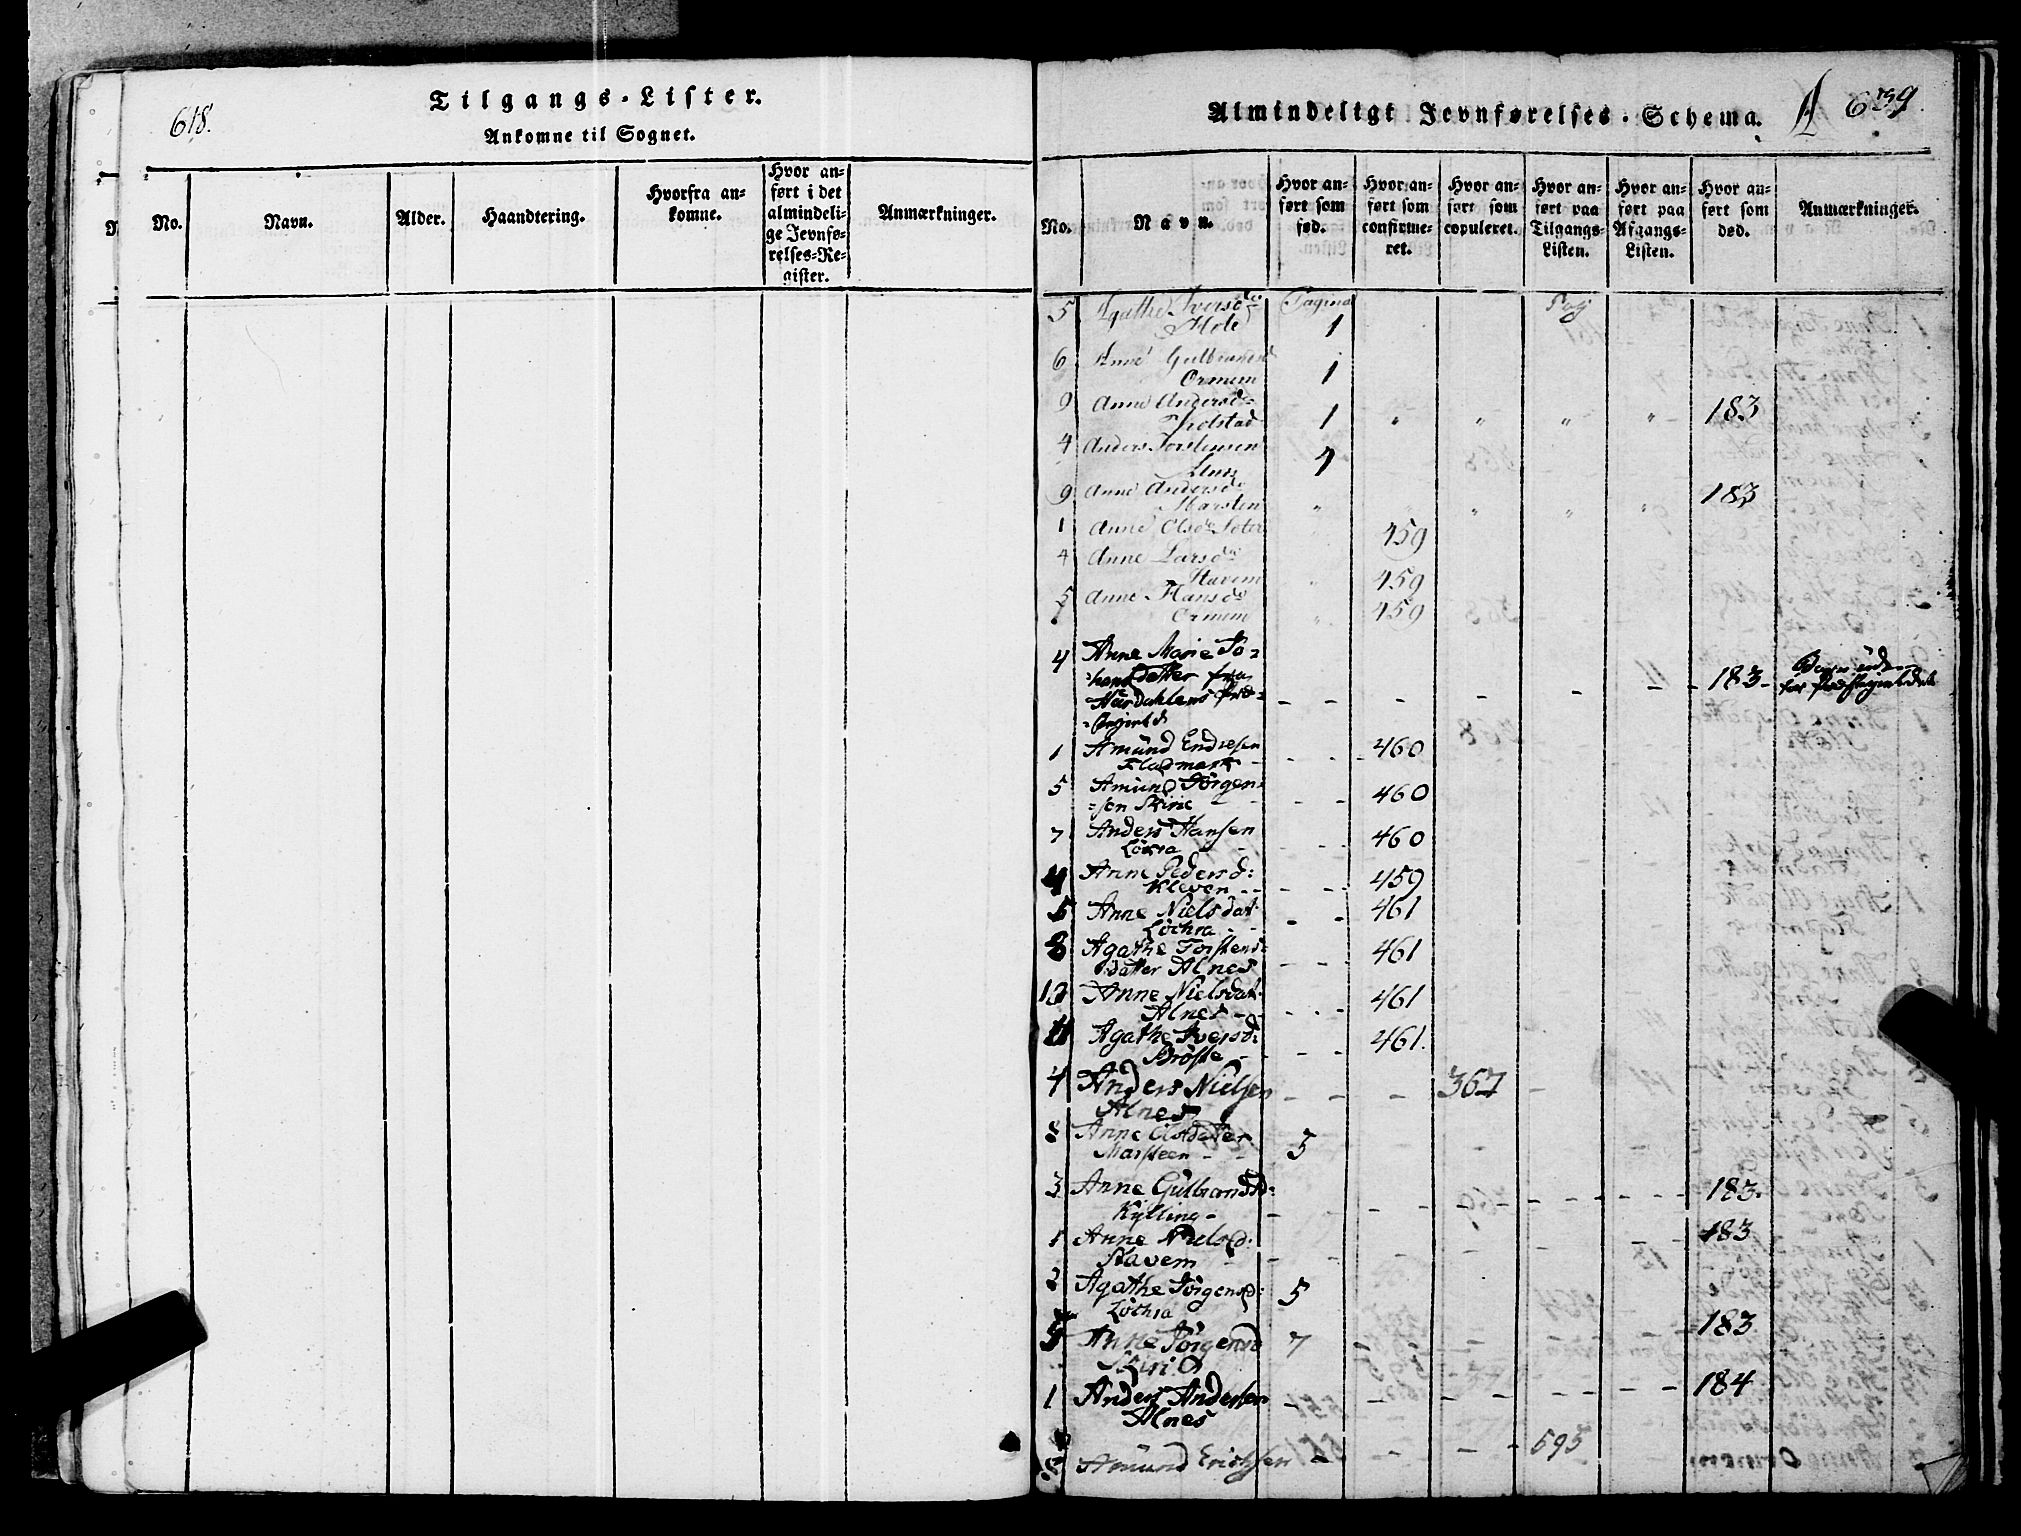 618.
Tilgangs-Lister.
Ankomne til Sognet.
No.
Navn.
Alder.
Haandtering.
Hvorfra an-
komne.
Hvor an-
ført i det
almindeli-
ge Jevnfø-
relses-Re-
gister.
Anmærkninger.
Almindeligt Jevnførelses-Schema. A 639
No.
Navn.
Hvor an-
ført som
fød.
Hvor an-
ført som
confirme-
ret.
Hvor an-
ført som
copuleret.
Hvor an-
ført paa
Tilgangs-
Listen.
Hvor an-
ført paa
Afgangs-
Listen.
Hvor an-
ført som
død.
Anmærkninger.
5 Agathe Iversd Pagina Pag
Hole 1
6 Anne Gulbransd
Ormem 1
9 Anne Andersd
1 " " " " 183
4 Anders Torstensen
9 Anne Andersd
Marsten " " " " 183
1 Anne Olsd Soter 459
4 Anne Larsd
Stavem " 459
5 Anne Hansd
Ormem " 459
4 Anne Marie Jo-
hansdatter fra
183
1 Amund Endresen
Fladmark 460
5 Amund Jörgen-
sen Skirie 460
7 Anders Hansen
Löcra 460
4 Anne Pedersd:
Kleven 459
5 Anne Nielsdat:
Löchra 461
8 Agathe Torstens-
datter Alnes 461
12 Anne Nielsdat:
Alnes 461
11 Agathe Iversd:
Bröste 461.
4 Anders Nielsen
Alnes 367
8 Anne Olsdatter
Marsteen 5
3 Anne Gulbrandsd:
Kylling 183.
1 Anne Nielsd:
Stavem 183
2 Agathe Jörgensd:
Löchra 5
Anne Jörgensd 7 183
Skiri
1 Anders Andersen
Alnes 184
Amund Erichsen 595